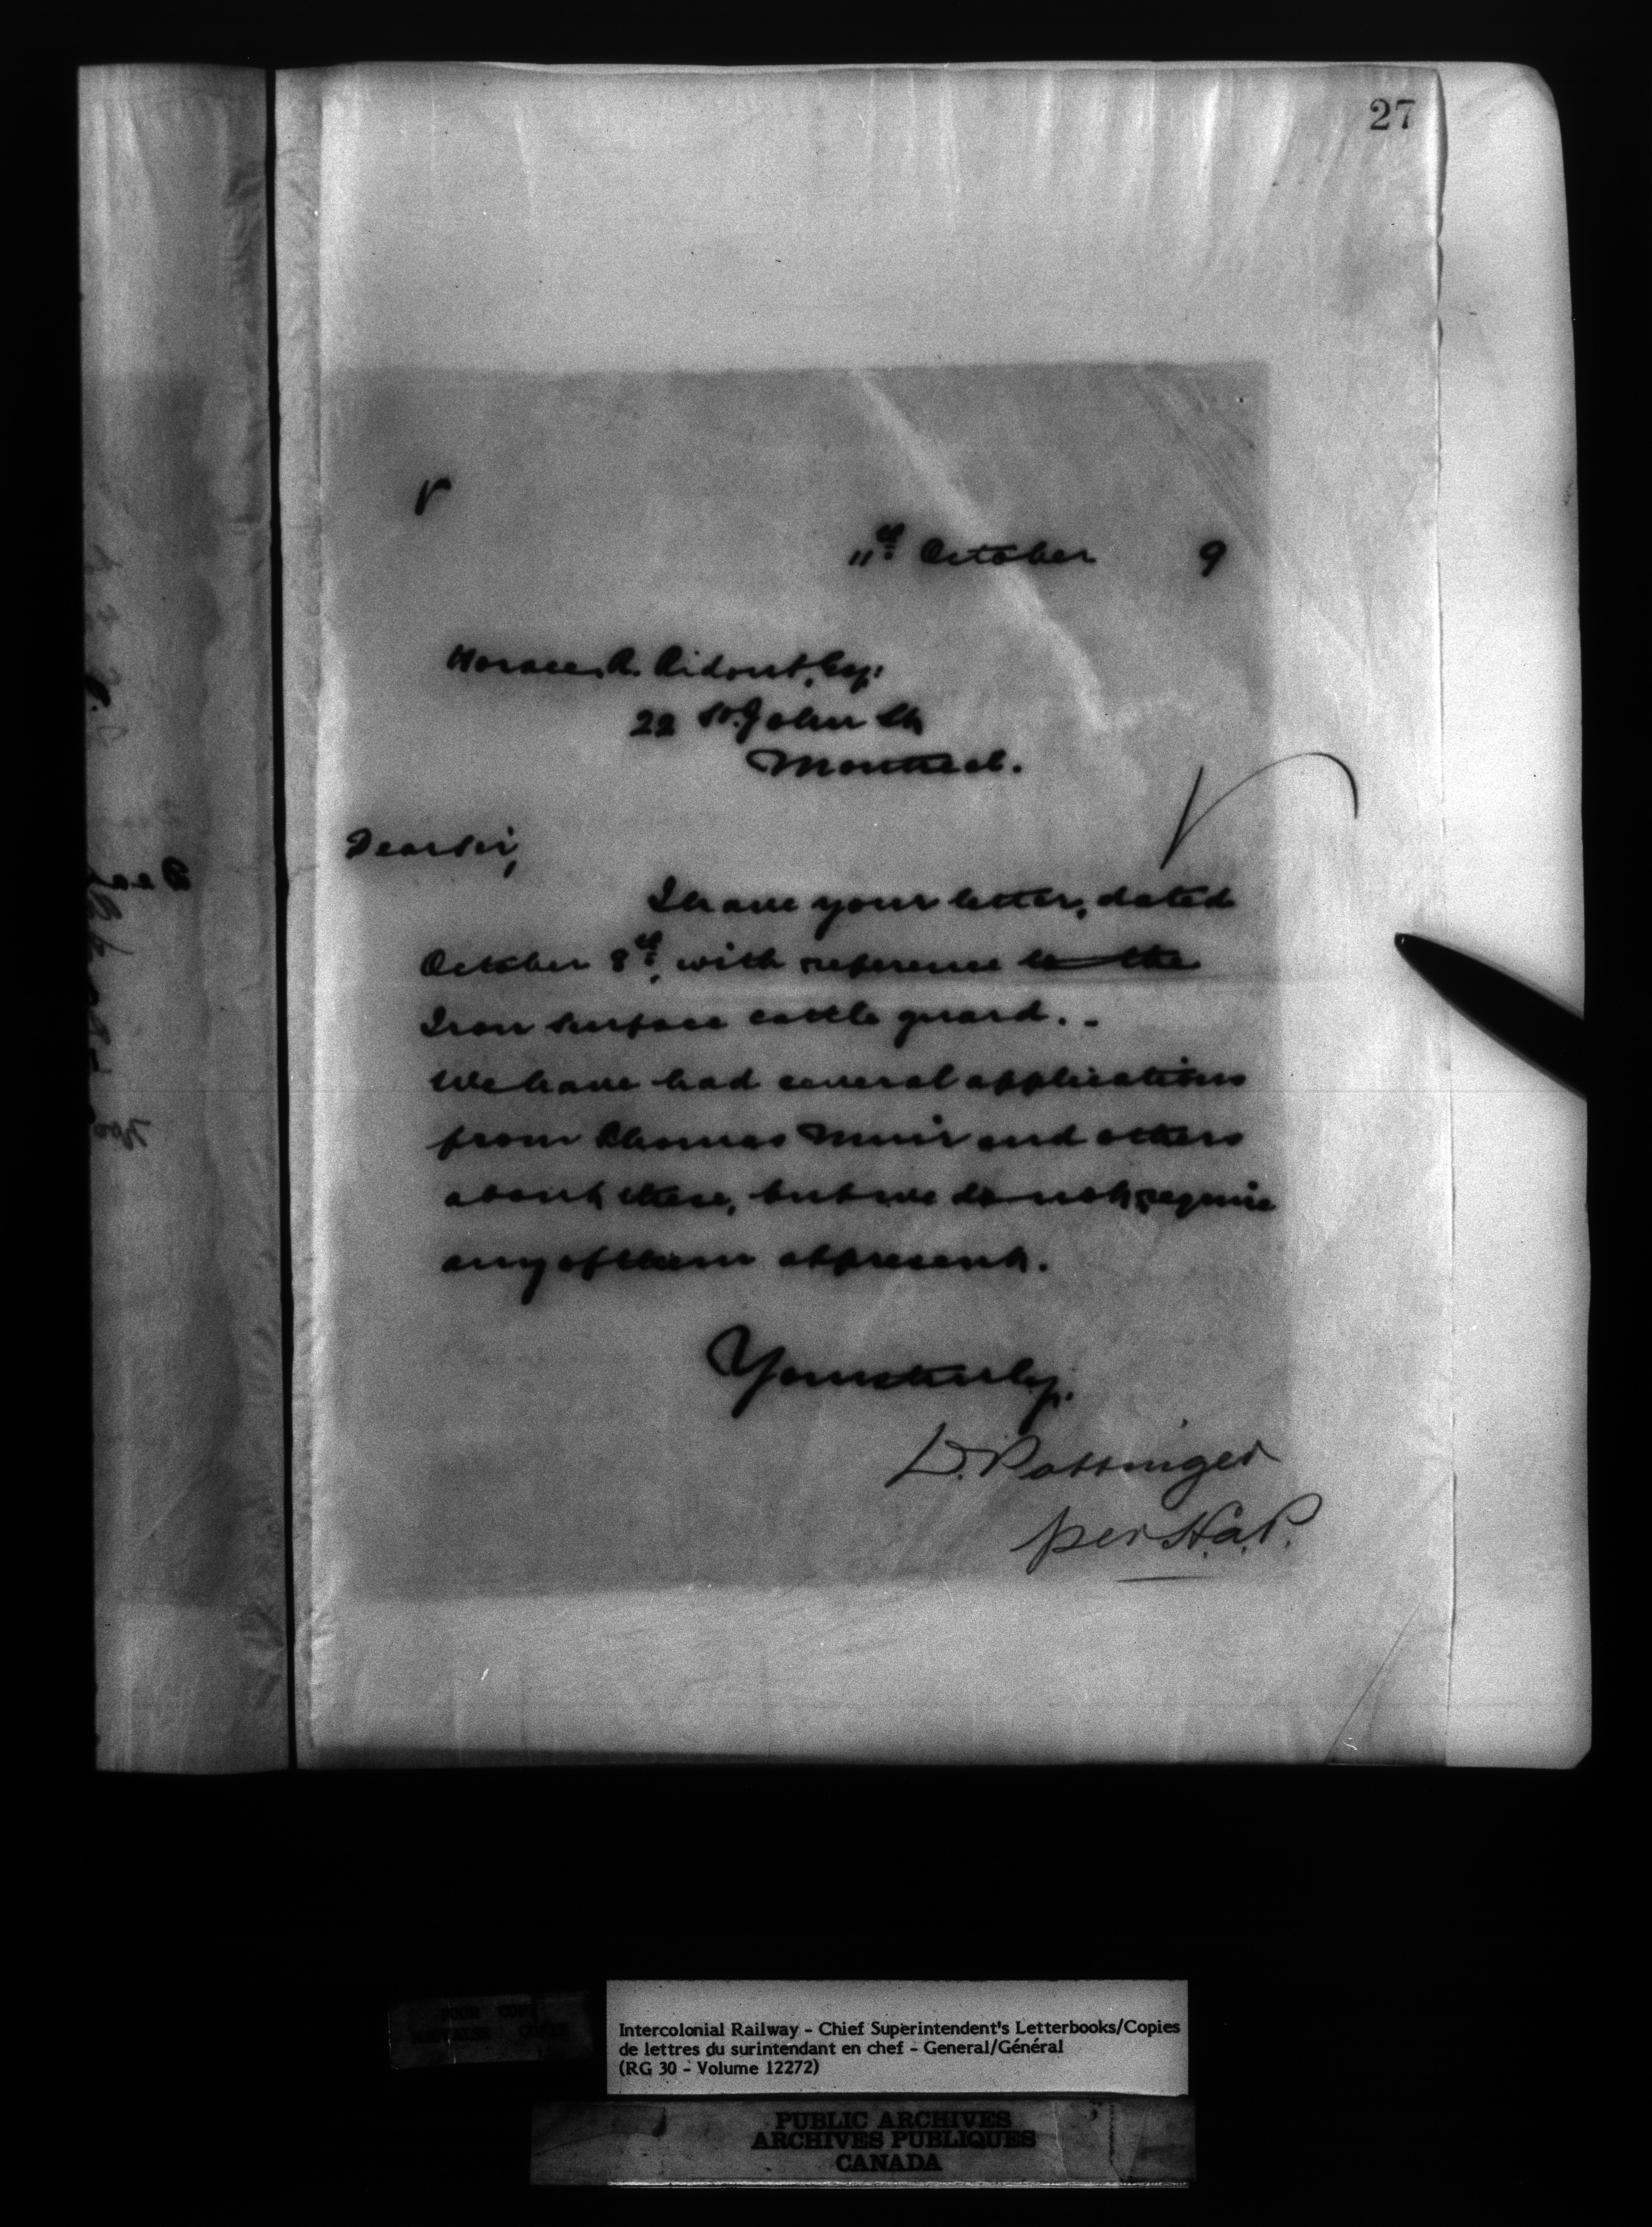 27
11th October 9
Horace R. Ridout, Esq.
22 St. John St.
Montreal.
Dear Sir,
I have your letter, dated
October 8th, with reference to the
Iron surface cattle guard. -
We have had several applications
from Thomas Muir and others
about these, but we do not require
any of them at present.
Yours truly,
D. Pottinger
per H.a.P.
Intercolonial Railway - Chief Superintendent's Letterbooks/Copies
de lettres du surintendant en chef - General/Général
(RG 30 - Volume 12272)
PUBLIC ARCHIVES
ARCHIVES PUBLIQUES
CANADA